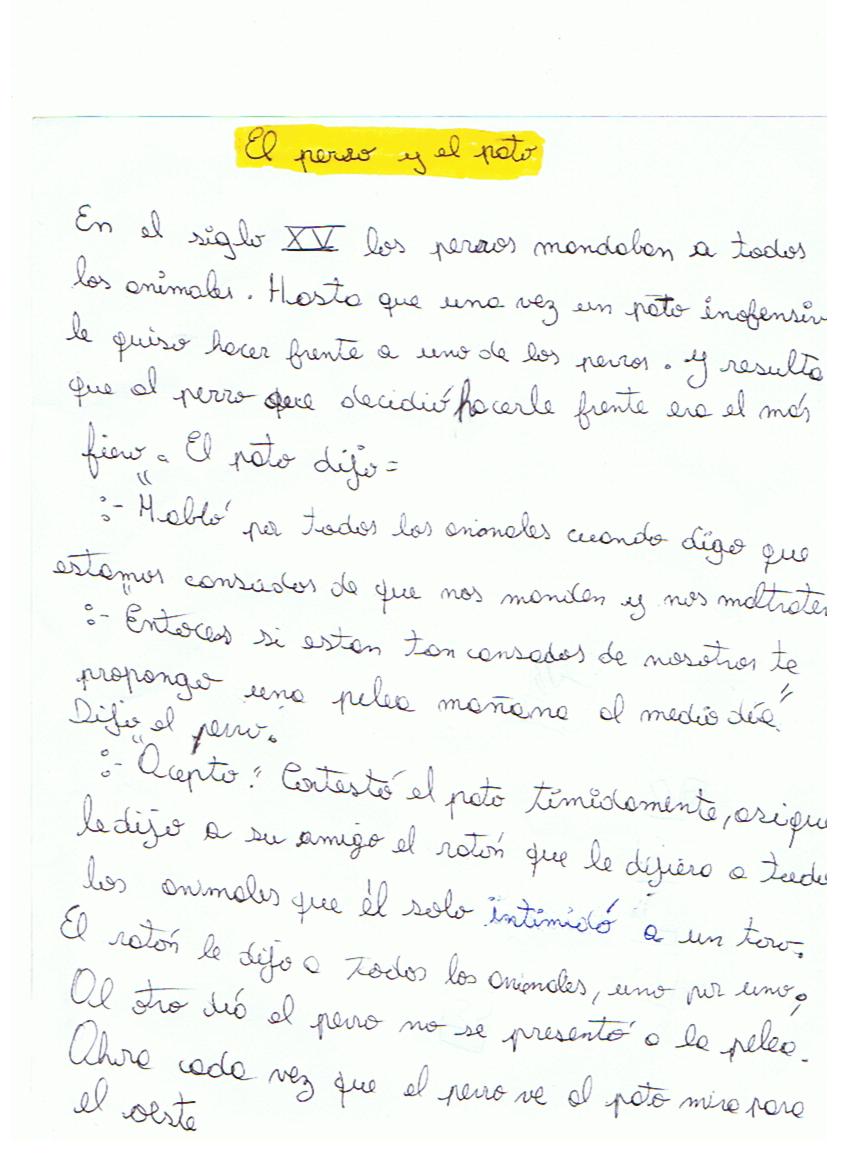 El perro y el pato
En el siglo XV los perros mandaban a todos
los animales. Hasta que una vez un pato inofensiv
le quiso hacer frente a uno de los perros. Y resulta
que al perro que decidió hacerle frente era el más
fiero. El pato dijo=
:-"Habló por todos los animales cuando digo que
estamos cansados de que nos manden y nos maltraten
:-"Entoces si estan tan cansados de nosotros te
propongo una pelea mañana al medio día"
Dijo el perro.
:-"Acepto." Contestó el pato timidamente, asique
le dijo a su amigo el ratón que le dijiera a todo
los animales que él solo intimidó a un toro.
El ratón le dijo a todos los animales, uno por uno.
Al otro diá el perro no se presentó a la pelea.
Ahora cada vez que el perro ve al pato mira para
el oeste